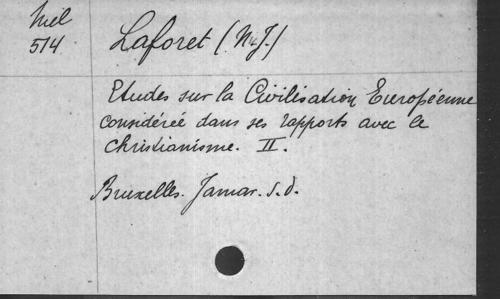 Mél
514
Laforet (N.J.)
Etudes sur la Civilisation Européenne
considérée dans ses rapports avec le
christianisme. II.
Bruxelles. Jamar. s.d.